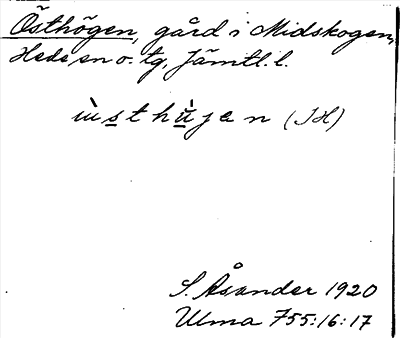 Östhögen, gård i Midskogen,
Hede sn o. tg, Jämtl. l.
ùsthùjen (JH)
S. Åsander 1920
Ulma 755:16:17